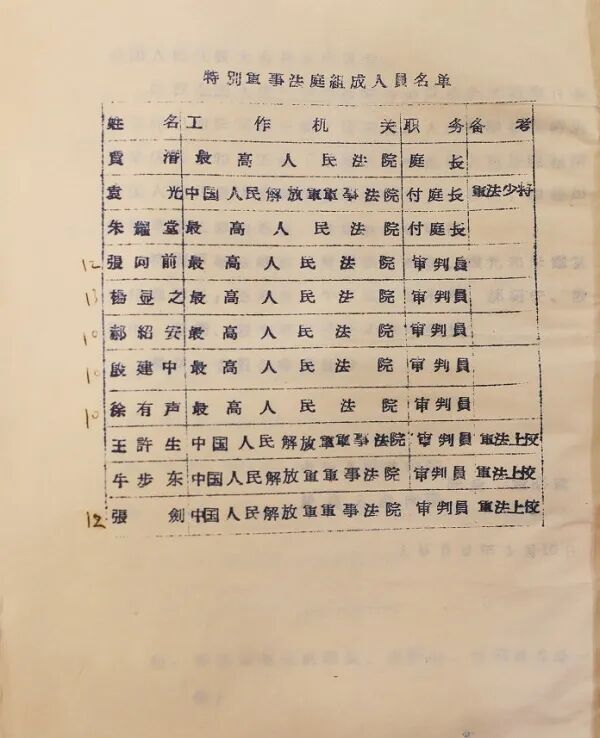 特別軍事法庭組成人員名单
姓名 工作机关 职务 备考
賈潛 最高人民法院 庭长
袁光 中国人民解放軍軍事法院 付庭长 軍法少将
朱耀堂 最高人民法院 付庭长
12 張向前 最高人民法院 审判員
13 楊显之 最高人民法院 审判員
10 郝紹安 最高人民法院 审判員
10 殷建中 最高人民法院 审判員
10 徐有声 最高人民法院 审判員
王許生 中国人民解放軍軍事法院 审判員 軍法上校
牛步东 中国人民解放軍軍事法院 审判員 軍法上校
12 張劍 中国人民解放軍軍事法院 审判員 軍法上校